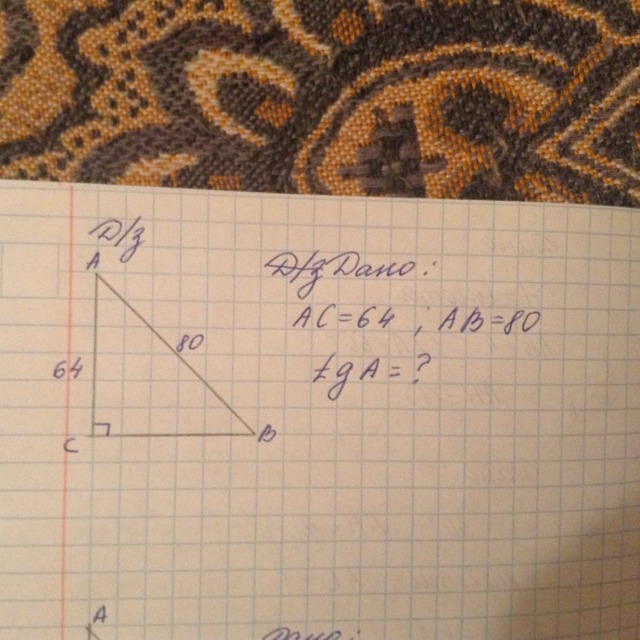 Д/з
A
80
64
C
B
Д/з Дано:
AC=64 ; AB=80
tg A = ?
A
Дано: